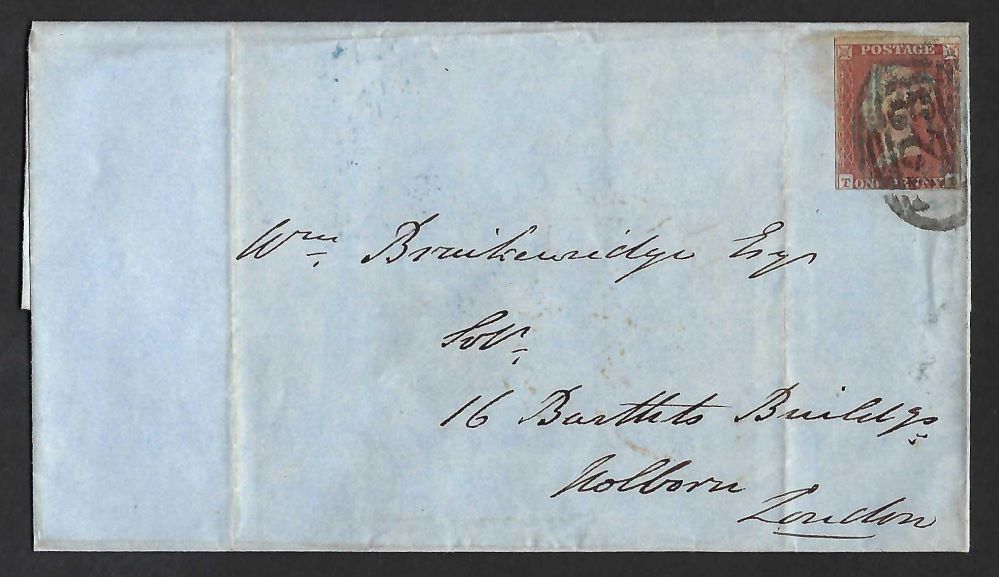 POSTAGE
T ONE PENNY
Wm Braikenridge Esqr
Solr
16 Bartletts Buildgs
Holborn
London